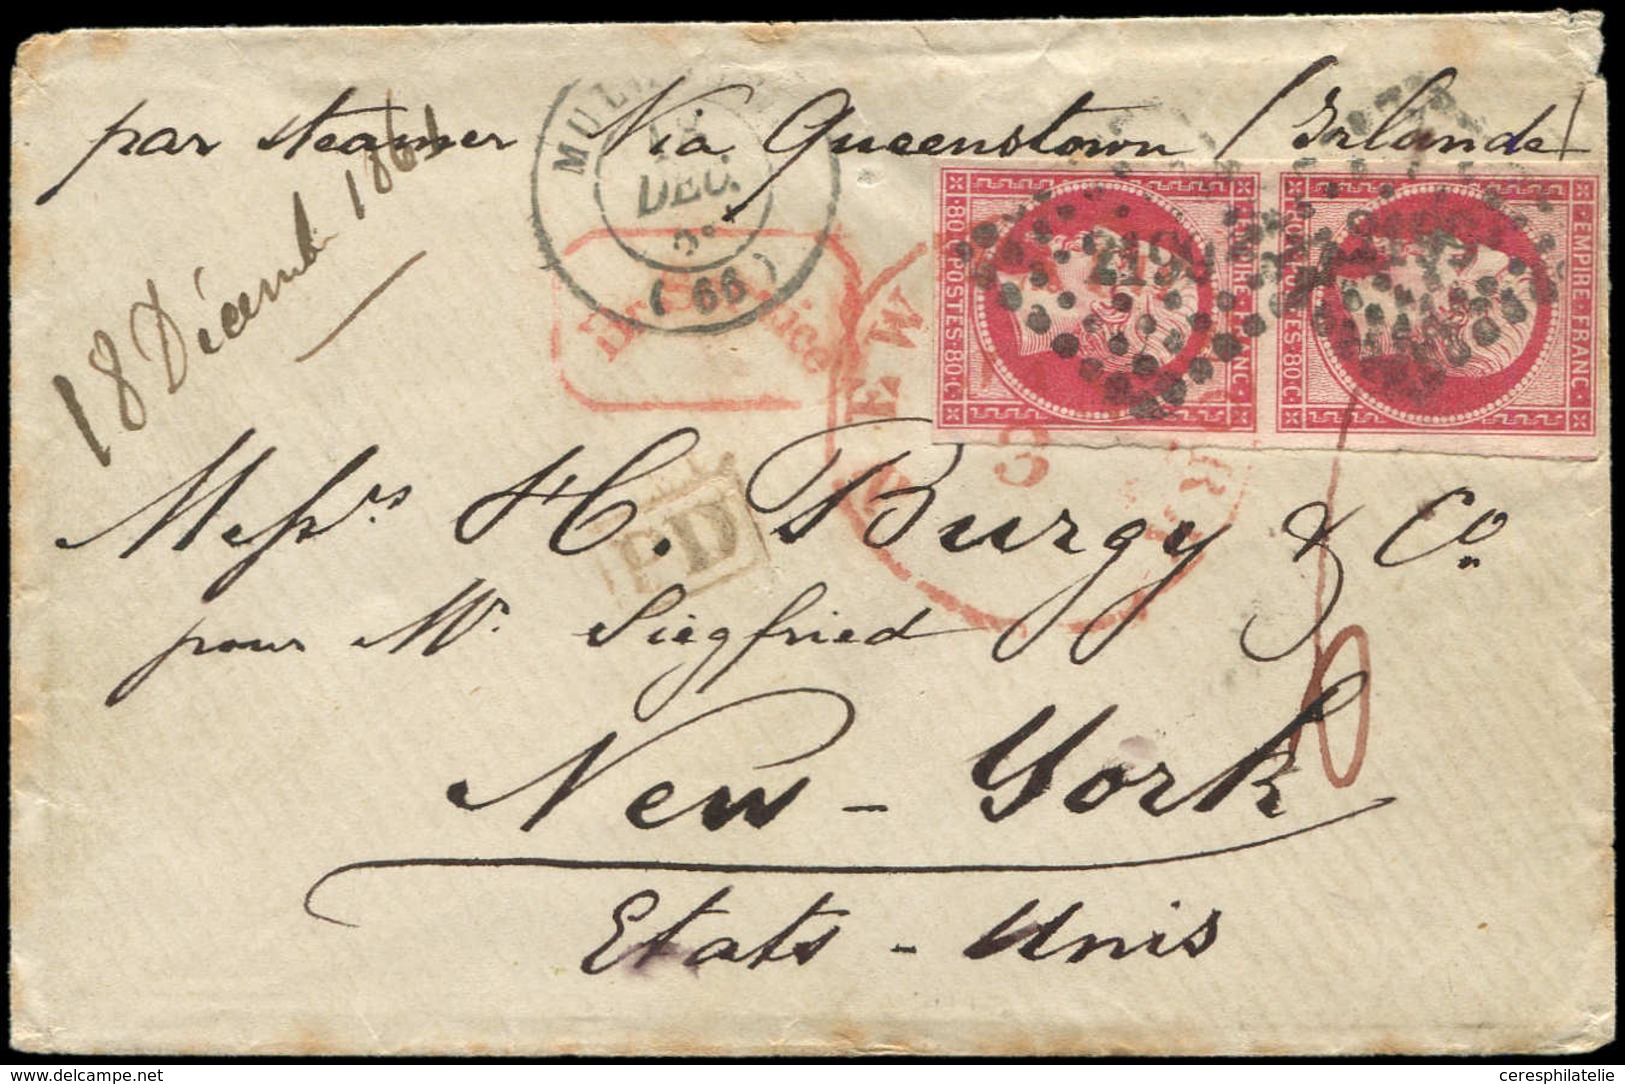 par steamer Via Queenstown (Irlande)
18 Décemb 1861
DEC.
(66)
2199
2199
80 C POSTES 80 C
EMPIRE FRANC
EMPIRE FRANC
80 C
NEW
3
PD
Messrs H. Burgy & Co.
pour Mr. Siegfried
New-York
Etats-Unis
delcampe.net
ceresphilatelie